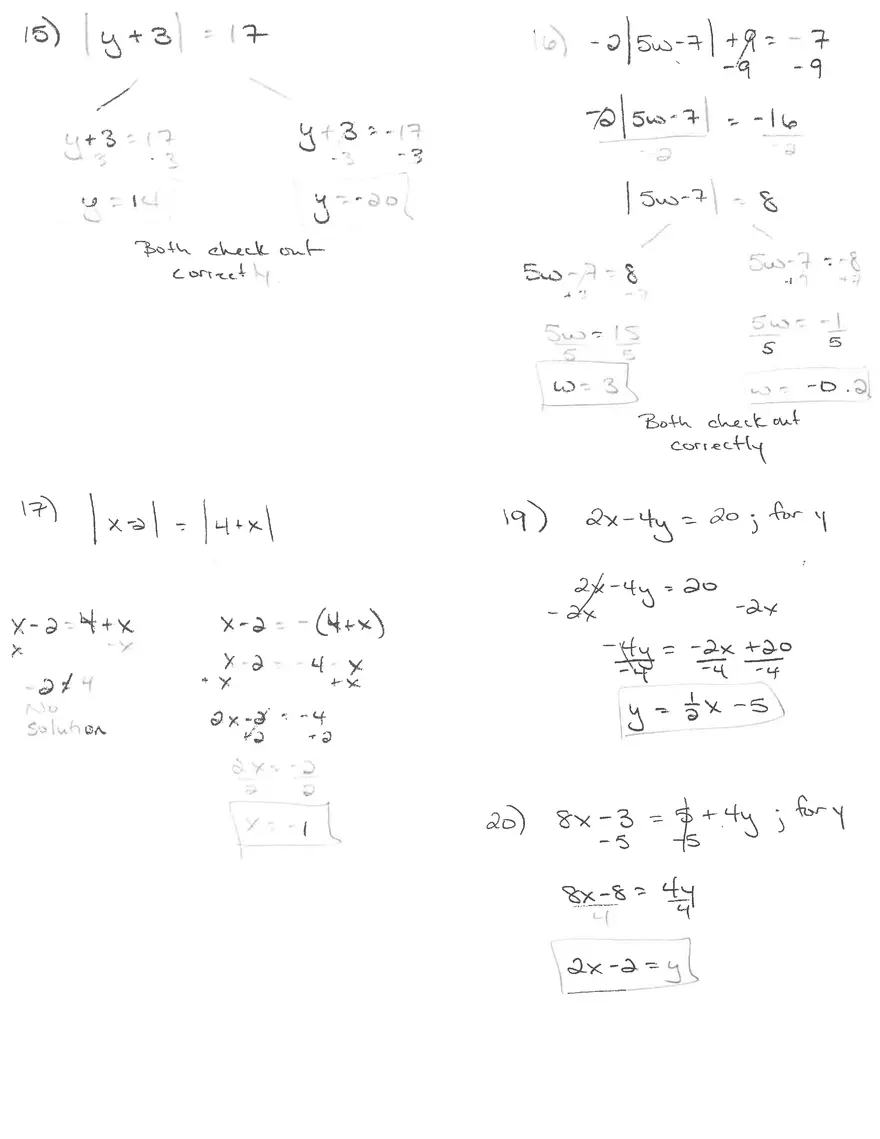 15) |y+3| = 17
y+3 = 17
-3 -3
y = 14
y+3 = -17
-3 -3
y = -20
Both check out
correctly.
16) -2|5w-7| +9 = -7
-9 -9
-2|5w-7| = -16
-2 -2
|5w-7| = 8
5w-7 = 8
+7 +7
5w = 15
5 5
w = 3
5w-7 = -8
+7 +7
5w = -1
5 5
w = -0.2
Both check out
correctly
17) |x-2| = |4+x|
x-2 = 4+x
x -x
-2 ≠ 4
No
Solution
x-2 = -(4+x)
x-2 = -4-x
+x +x
2x-2 = -4
+2 +2
2x = -2
2 2
x = -1
19) 2x-4y = 20 ; for y
2x-4y = 20
-2x -2x
-4y = -2x +20
-4 -4 -4
y = 1/2 x - 5
20) 8x-3 = 5+4y ; for y
-5 -5
8x-8 = 4y
4 4
2x-2 = y